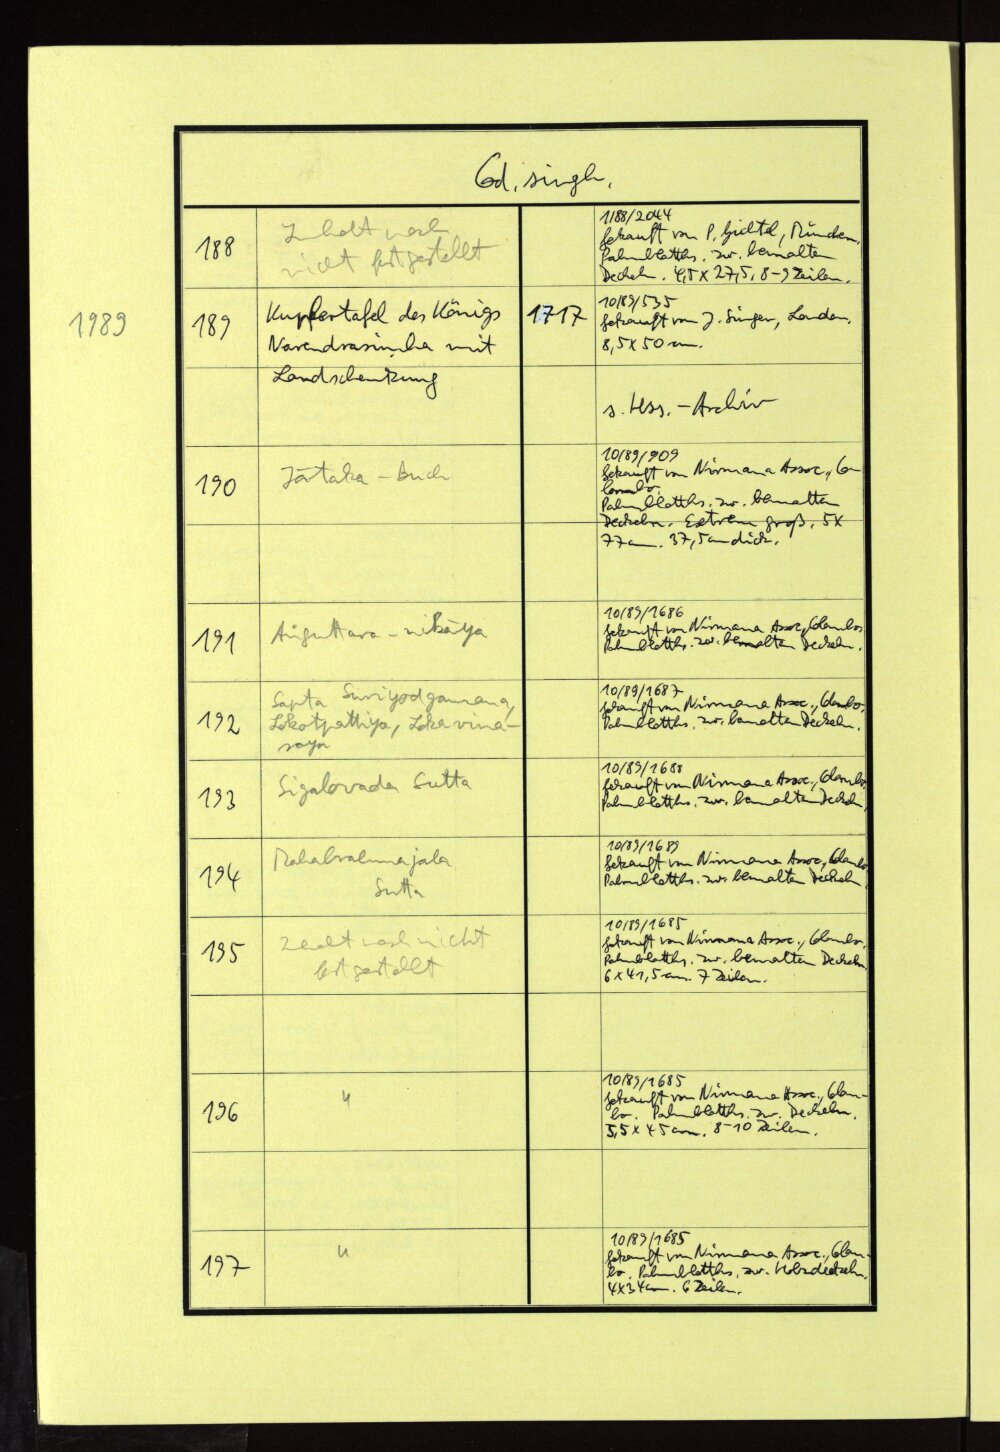 Cod. singh.
188
Inhalt noch
nicht festgestellt
1/88/2044
Gekauft von P. Gichtel, München.
Palmblatths. zw. bemalten
Deckeln. 4,5 x 27,5, 8-9 Zeilen.
1989
189
Kupfertafel des Königs
Narendrasimha mit
Landschenkung
1717
10/89/535
Gekauft von J. Singer, London.
8,5 x 50 cm.
s. Hss.-Archiv
190
Jātaka-Buch
10/89/909
Gekauft von Nirmana Assoc., Co-
lombo.
Palmblatths. zw. bemalten
Deckeln. Extrem groß. 5 x
77 cm. 37,5 cm dick.
191
Aṅguttara-nikāya
10/89/1686
Gekauft von Nirmana Assoc., Colombo.
Palmblatths. zw. bemalten Deckeln.
192
Sapta Suriyodgamana,
Lokotpattiya, Lokavina-
saya
10/89/1687
Gekauft von Nirmana Assoc., Colombo.
Palmblatths. zw. bemalten Deckeln.
193
Sigalovada Sutta
10/89/1688
Gekauft von Nirmana Assoc., Colombo.
Palmblatths. zw. bemalten Deckeln.
194
Mahabrahmajala
Sutta
10/89/1689
Gekauft von Nirmana Assoc., Colombo
Palmblatths. zw. bemalten Deckeln
195
Inhalt noch nicht
festgestellt
10/89/1685
Gekauft von Nirmana Assoc., Colombo.
Palmblatths. zw. bemalten Deckeln.
6 x 41,5 cm. 7 Zeilen.
196
"
10/89/1685
Gekauft von Nirmana Assoc., Colom-
bo. Palmblatths. zw. Deckeln.
5,5 x 45 cm. 8-10 Zeilen.
197
"
10/89/1685
Gekauft von Nirmana Assoc., Colom-
bo. Palmblatths. zw. Holzdeckeln.
4x34 cm. 6 Zeilen.